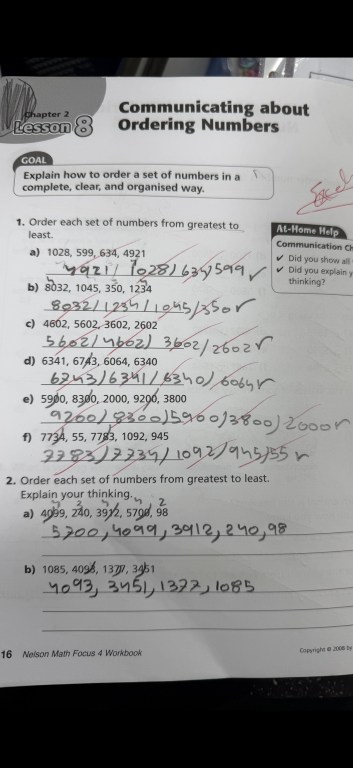 Chapter 2
Lesson 8
Communicating about
Ordering Numbers
GOAL
Explain how to order a set of numbers in a
complete, clear, and organised way.
1. Order each set of numbers from greatest to
least.
At-Home Help
Communication
✔ Did you show all
✔ Did you explain
thinking?
a) 1028, 599, 634, 4921
4921/1028/634/599
b) 8032, 1045, 350, 1234
8032/1234/1045/350
c) 4602, 5602, 3602, 2602
5602/4602/3602/2602
d) 6341, 6743, 6064, 6340
6743/6341/6340/6064
e) 5900, 8300, 2000, 9200, 3800
9200/8300/5900/3800/2000
f) 7734, 55, 7783, 1092, 945
7783/7734/1092/945/55
2. Order each set of numbers from greatest to least.
Explain your thinking.
a) 4099, 240, 3912, 5700, 98
5700, 4099, 3912, 240, 98
b) 1085, 4093, 1377, 3451
4093, 3451, 1377, 1085
16 Nelson Math Focus 4 Workbook
Copyright © 2008 by